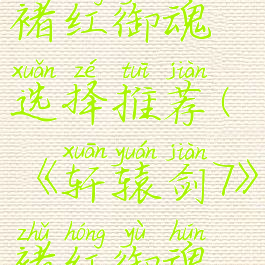 褚红御魂
xuǎn zé tuī jiàn
选择推荐(
xuān yuán jiàn
《轩辕剑7》
zhǔ hóng yù hún
褚红御魂